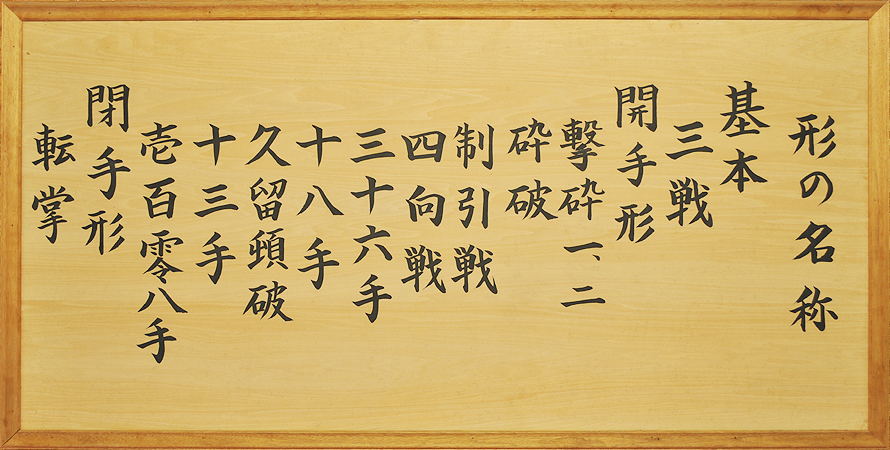 形の名称
基本
三戦
開手形
撃砕一、二
砕破
制引戦
四向戦
三十六手
十八手
久留頓破
十三手
壱百零八手
閉手形
転掌